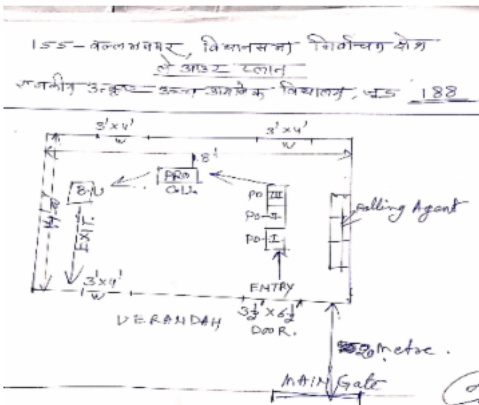 155- वल्लभनगर, विधानसभा निर्वाचन क्षेत्र
ले आउट प्लान
राजकीय उत्कृष्ट उच्च माध्यमिक विद्यालय, 188
3'x4' 3'x4'
W W
18'
B.U PRO
C.U.
PO III
PO-II
PO-I
Polling Agent
EXIT.
3'x4'
W
ENTRY
3½' x 6½'
DOOR.
VERANDAH
20 metre.
MAIN Gate